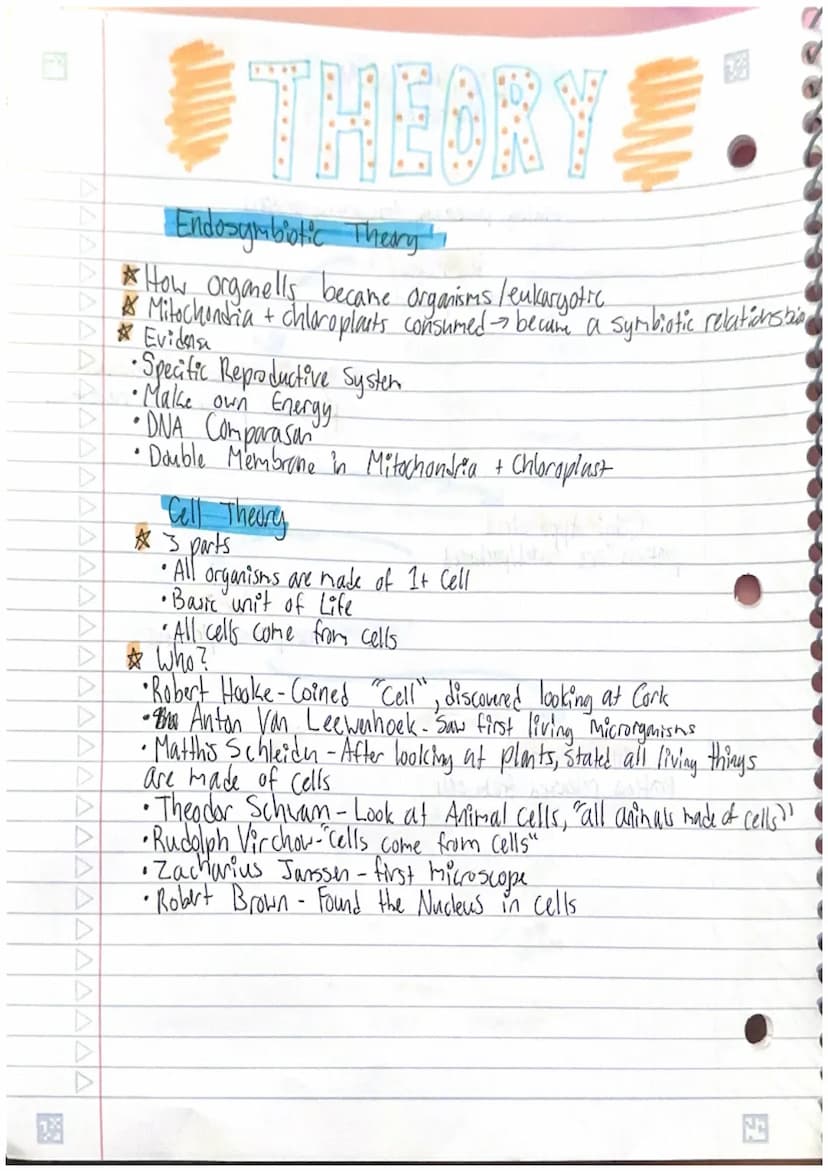 THEORY
Endosymbiotic Theory
How organells became organisms/eukaryotic
Mitochondria + chloroplasts consumed → became a symbiotic relationship
Evidense
• Specific Reproductive System
• Make own Energy
• DNA Comparasan
• Double Membrane in Mitochondria + Chloroplast
Cell Theory
3 parts
• All organisms are made of 1+ Cell
• Basic unit of Life
• All cells come from cells
Who?
• Robert Hooke - Coined "Cell", discovered looking at Cork
• Anton Van Leewenhoek - Saw first living microrganisms
• Matthis Schleidn - After looking at plants, stated all living things
are made of cells
• Theodor Schwam - Look at Animal Cells, "all animals made of cells"
• Rudolph Virchow - "Cells come from cells"
• Zacharius Janssen - first microscope
• Robert Brown - Found the Nucleus in cells